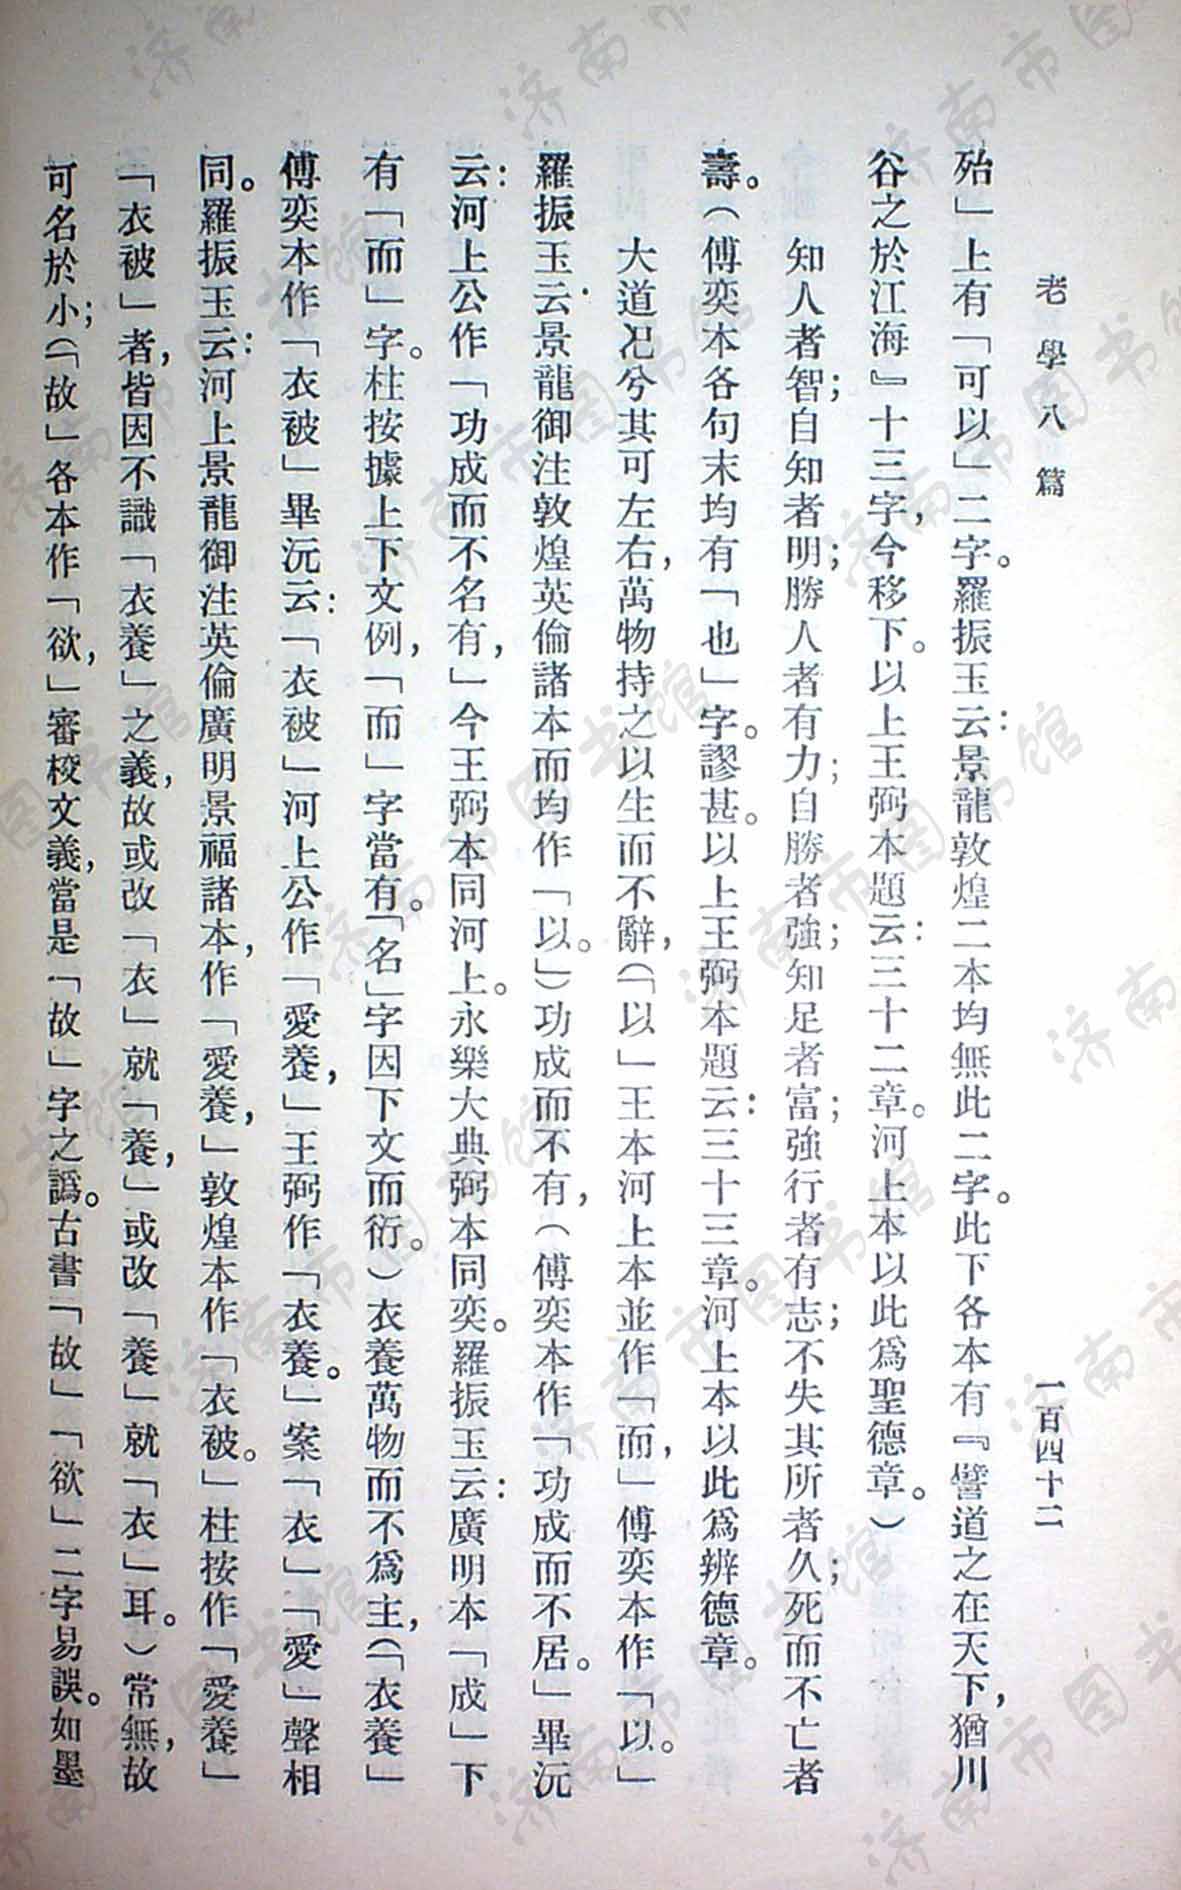 老學八篇
一百四十二
殆」上有「可以」二字。羅振玉云:景龍敦煌二本均無此二字。此下各本有『譬道之在天下,猶川
谷之於江海』十三字,今移下。以上王弼本題云:三十二章。河上本以此爲聖德章。)
知人者智;自知者明;勝人者有力;自勝者強;知足者富;強行者有志;不失其所者久;死而不亡者
壽。(傅奕本各句末均有「也」字。謬甚。以上王弼本題云:三十三章。河上本以此爲辨德章。
大道氾兮其可左右,萬物持之以生而不辭,(「以」王本河上本並作「而,」傅奕本作「以。」
羅振玉云·景龍御注敦煌英倫諸本而均作「以。」)功成而不有,(傅奕本作「功成而不居。」畢沅
云:河上公作「功成而不名有,」今王弼本同河上。永樂大典弼本同奕。羅振玉云:廣明本「成」下
有「而」字。柱按據上下文例,「而」字當有。「名」字因下文而衍。)衣養萬物而不爲主,(「衣養」
傅奕本作「衣被」畢沅云:「衣被」河上公作「愛養,」王弼作「衣養。」案「衣」「愛」聲相
同。羅振玉云:河上景龍御注英倫廣明景福諸本,作「愛養,」敦煌本作「衣被。」柱按作「愛養」
「衣被」者,皆因不識「衣養」之義,故或改「衣」就「養,」或改「養」就「衣」耳。)常無,故
可名於小;(「故」各本作「欲,」審校文義,當是「故」字之譌。古書「故」「欲」二字易誤。如墨